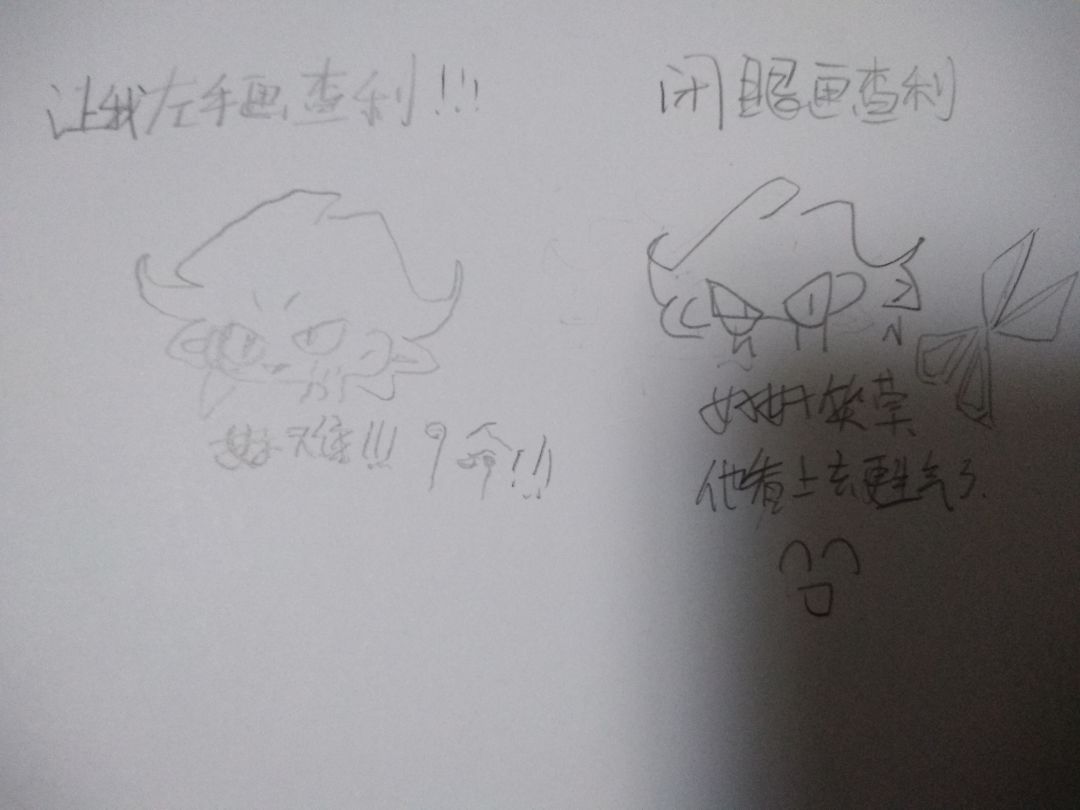 让我左手画查利!!!
好难!!! 9命!!!
闭眼画查利
好好笑
他看上去更生气了.